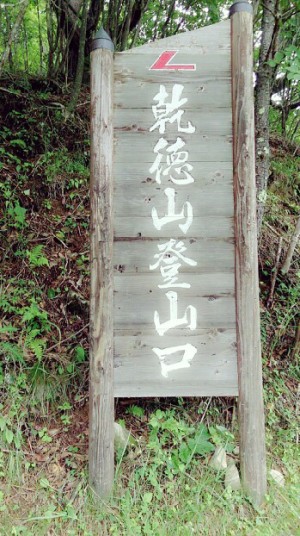 乾徳山登山口